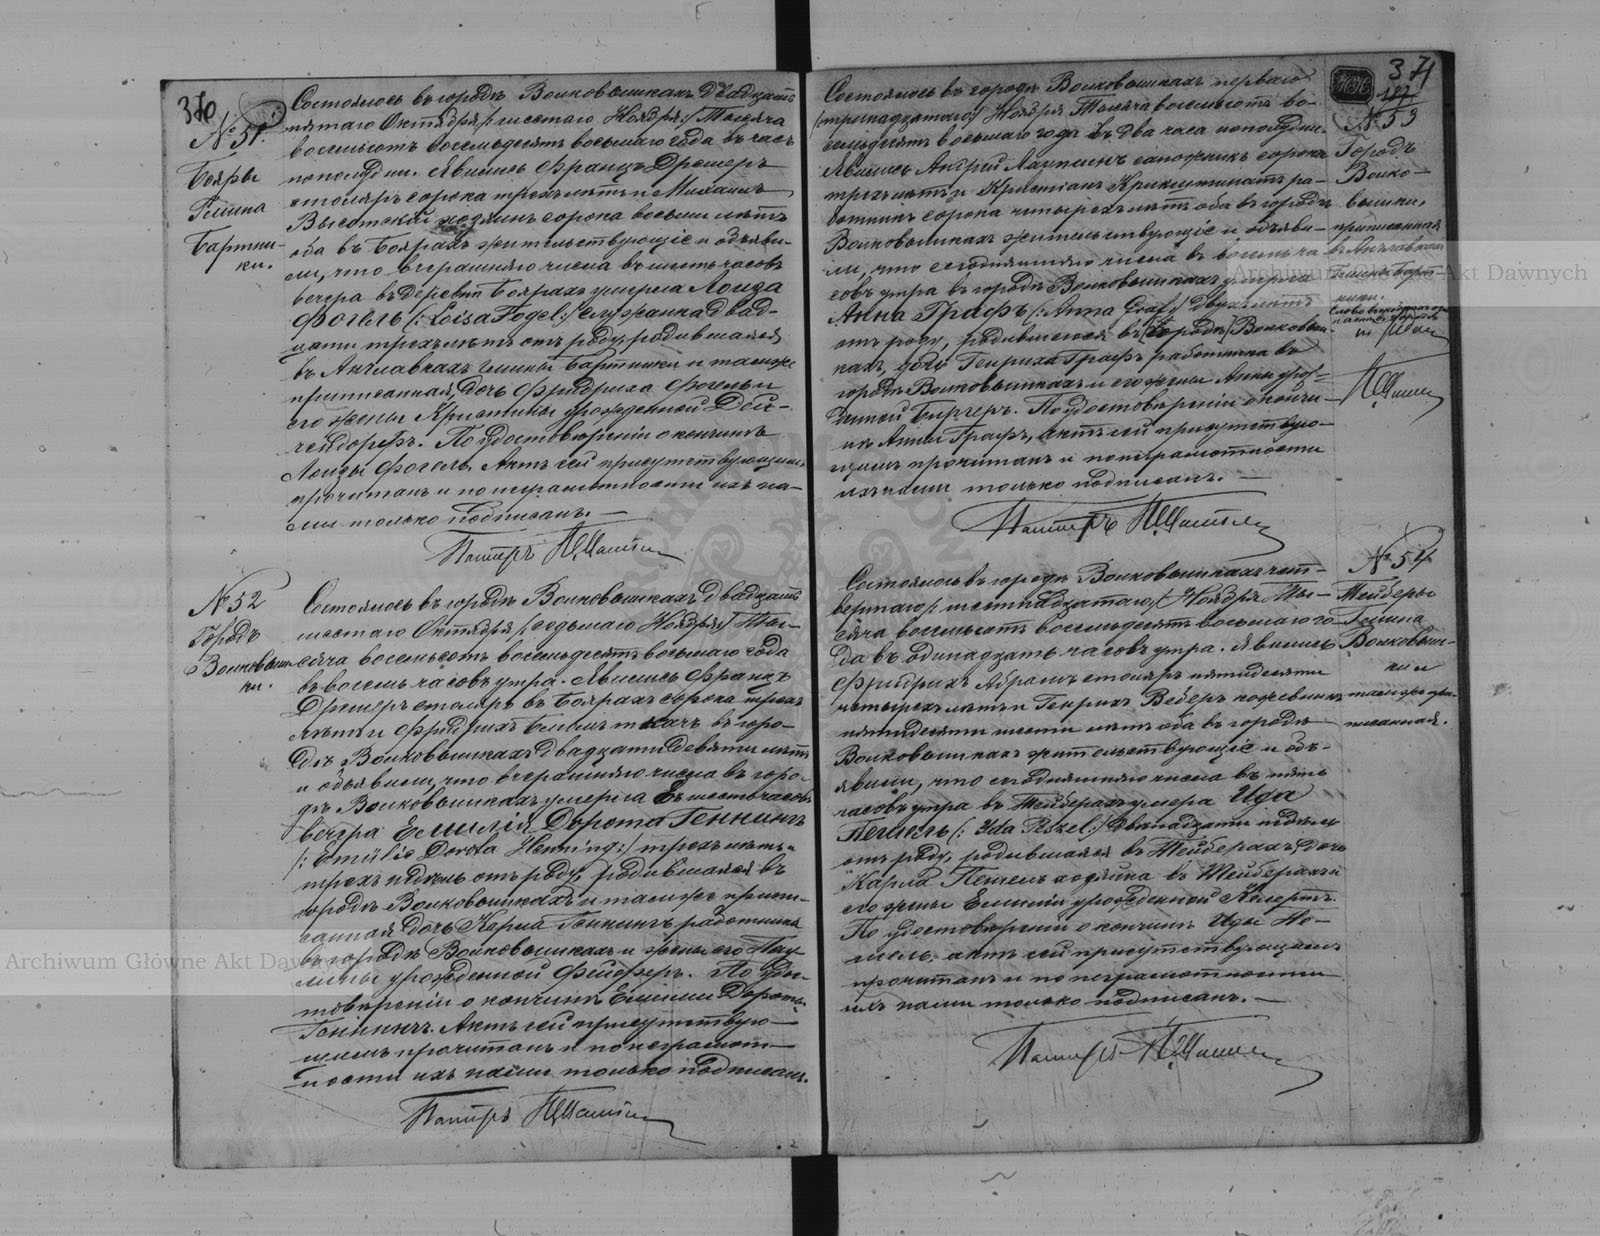 370
№ 51.
Бояры
Гмина
Бартни-
ки.
Состоялось въ городѣ Волковышкахъ двадцать
пятаго Октября /: шестаго Ноября :/ Тысяча
восемьсотъ восемьдесятъ восьмаго года въ часъ
пополудни. Явились Францъ Дремеръ
столяръ сорока трехъ лѣтъ и Михаилъ
Высотскій хозяинъ сорока восьми лѣтъ
оба въ Боярахъ жительствующіе и объяви-
ли, что вчерашняго числа въ шесть часовъ
вечера въ деревнѣ Боярахъ умерла Лоиза
Фогель (: Loisa Fogel :) служанка двад-
цати трехъ лѣтъ отъ роду, родившаяся
въ Антлавкахъ гмины Бартники и тамже
приписанная, дочь Фридриха Фогель и
его жены Кристины урожденной Дой-
чендорфъ. По удостовѣреніи о кончинѣ
Лоизы Фогель, Актъ сей присутствующимъ
прочитанъ и по неграмотности ихъ на-
ми только подписанъ. —
Пасторъ
№ 52
Городъ
Волковыш-
ки.
Состоялось въ городѣ Волковышкахъ двадцать
шестаго Октября /: седьмаго Ноября :/ Ты-
сяча восемьсотъ восемьдесятъ восьмаго года
въ восемь часовъ утра. Явились Францъ
Дремеръ столяръ въ Боярахъ сорока трехъ
лѣтъ и Фридрихъ ткачъ въ горо-
дѣ Волковышкахъ двадцати девяти лѣтъ
и объявили, что вчерашняго числа въ горо-
дѣ Волковышкахъ умерла въ шесть часовъ
вечера Емилія Дорота Геннингъ
/: Emilie Dorota Henning :/ трехъ лѣтъ и
трехъ недѣль отъ роду, родившаяся въ
городѣ Волковышкахъ и тамже припи-
санная дочь Карла Геннингъ работника
въ городѣ Волковышкахъ и жены его Пау-
лины урожденной Фейферъ. По удос-
товѣреніи о кончинѣ Емиліи Дороты
Геннингъ. Актъ сей присутствую-
щимъ прочитанъ и по неграмот-
ности ихъ нами только подписанъ.
Пасторъ
371
187
№ 53
Городъ
Волко-
вышки,
приписанная
въ Антлавкахъ
гмины Барт-
ники.
Состоялось въ городѣ Волковышкахъ перваго
/тринадцатаго/ Ноября Тысяча восемьсотъ во-
семьдесятъ восьмаго года въ два часа пополудни.
Явились Андрей сапожникъ сорока
трехъ лѣтъ и Кристіанъ ра-
ботникъ сорока четырехъ лѣтъ оба въ городѣ
Волковышкахъ жительствующіе и объяви-
ли, что сегодняшняго числа въ восемь ча-
совъ утра въ городѣ Волковышкахъ умерла
Анна Графъ /: Anna Graf :/ двухъ лѣтъ
отъ роду, родившаяся въ /городѣ/ Волковыш-
кахъ, дочь Генриха Графъ работника въ
городѣ Волковышкахъ и его жены Анны урож-
денной Бирчеръ. По удостовѣреніи о кончи-
нѣ Анны Графъ, актъ сей присутствую-
щимъ прочитанъ и по неграмотности
ихъ нами только подписанъ. —
Пасторъ
№ 54
Тейберы
Гмина
Волковыш-
ки
тамже при-
писанная.
Состоялось въ городѣ Волковышкахъ чет-
вертаго /: шестнадцатаго :/ Ноября Ты-
сяча восемьсотъ восемьдесятъ восьмаго го-
да въ одинадцать часовъ утра. Явились
Фридрихъ Абрамъ столяръ пятидесяти
четырехъ лѣтъ и Генрихъ Веберъ кожевникъ
пятидесяти шести лѣтъ оба въ городѣ
Волковышкахъ жительствующіе и объ-
явили, что сегодняшняго числа въ пять
часовъ утра въ Тейберахъ умерла Ида
Пешель (: Ida Peszel :) двѣнадцати недѣль
отъ роду, родившаяся въ Тейберахъ, дочь
Карла Пешель хозяина въ Тейберахъ и
его жены Емиліи урожденной Кемертъ.
По удостовѣреніи о кончинѣ Иды Пе-
шель, актъ сей присутствующимъ
прочитанъ и по неграмотности
ихъ нами только подписанъ. —
Пасторъ
Archiwum Główne Akt Dawnych
Archiwum Główne Akt Dawnych